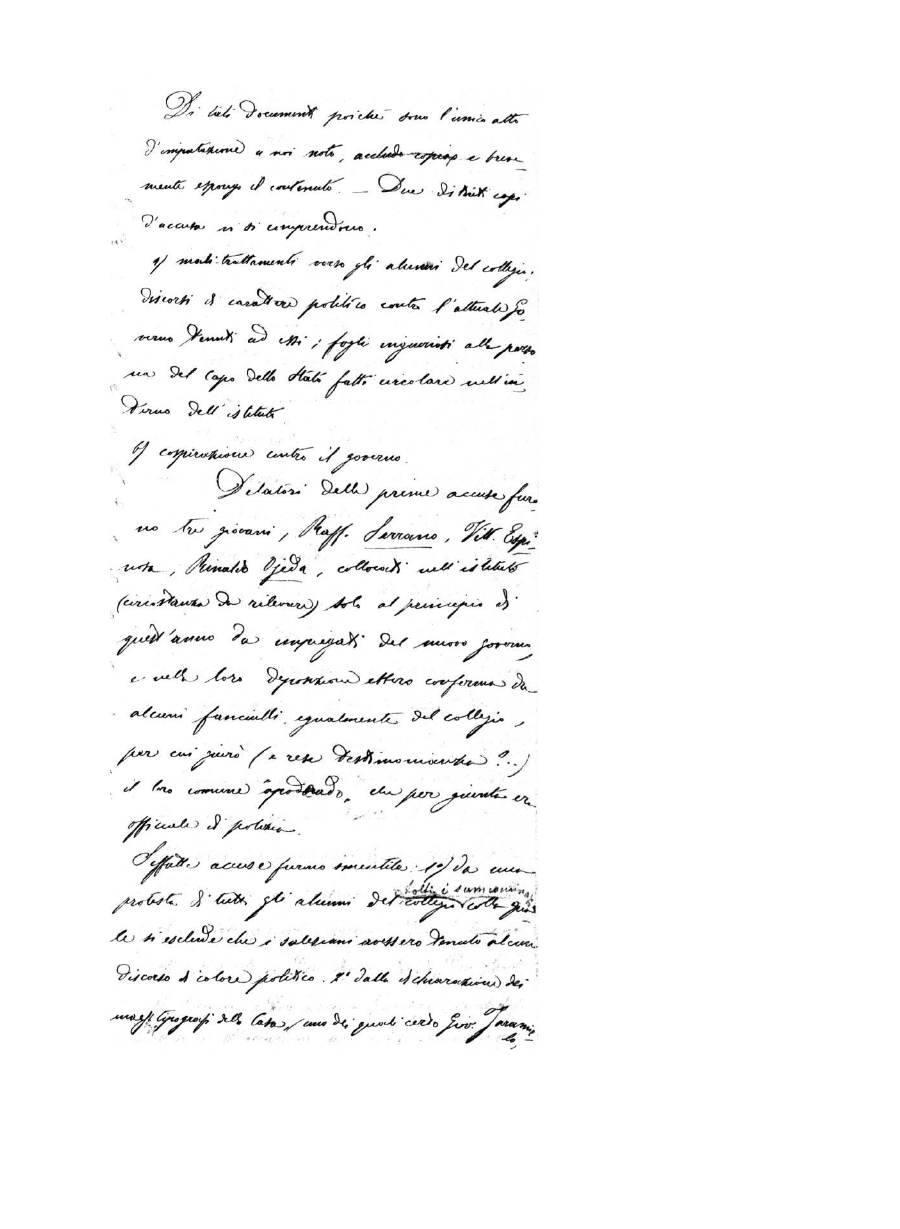 Di tali documenti poiché sono l'unico atto
d'imputazione a noi noto, accludo copia e breve-
mente espongo il contenuto. — Due distinti capi
d'accusa vi si comprendono.
a) mali trattamenti verso gli alunni del collegio,
discorsi di carattere politico contro l'attuale Go-
verno tenuti ad essi; fogli ingiuriosi alla perso
na del Capo dello Stato fatti circolare nell'in
terno dell'istituto
b) cospirazione contro il governo.
Delatori delle prime accuse furo
no tre giovani, Raff. Serrano, Vitt. Espi-
nosa, Rinaldo Ojeda, collocati nell'istituto
(circostanza da rilevare) solo al principio di
quest'anno da impiegati del nuovo governo,
e nella loro deposizione ebbero conferma da
alcuni fanciulli egualmente del collegio,
per cui giurò (e rese testimonianza?..)
il loro comune che per giunta era
officiale di polizia.
Siffatte accuse furono smentite 1º) da una
protesta di tutti gli alunni del collegio colla qua
le si esclude che i salesiani avessero tenuto alcun
discorso di colore politico. 2º dalla dichiarazione dei
tipografi della Casa, uno dei quali certo Giov. Jarami-
lo,